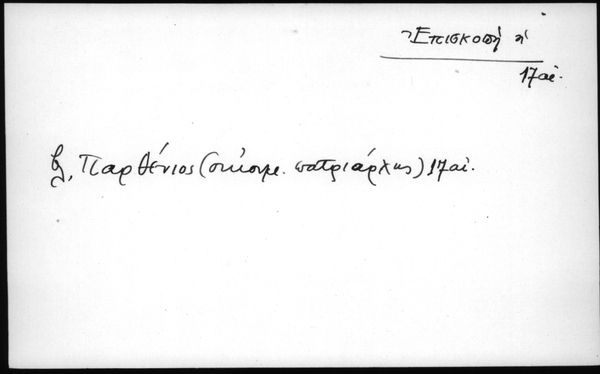 Ἐπισκοπὴ ἡ
17 αἰ.
βλ. Παρθένιος (οἰκουμ. πατριάρχης) 17 αἰ.